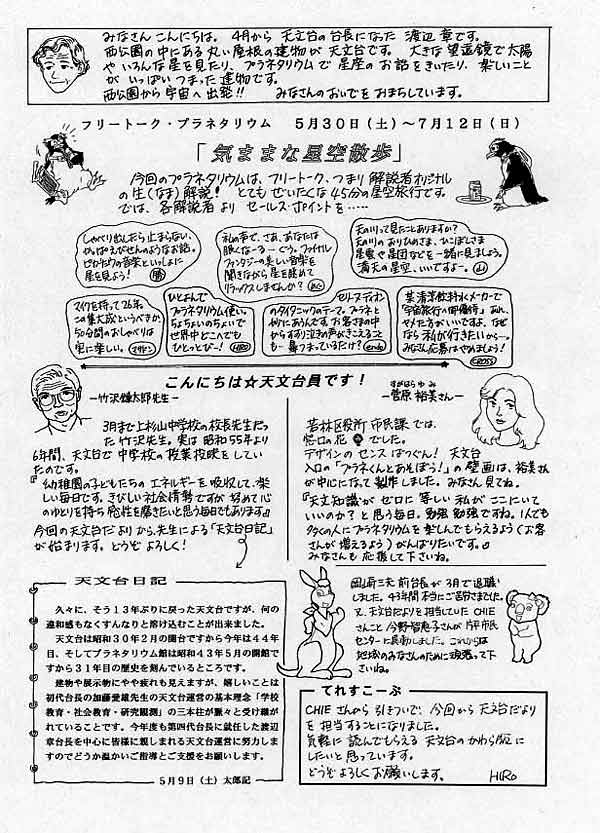 みなさん こんにちは。 4月から 天文台の台長になった 渡辺 章です。
西公園の中にある 丸い屋根の建物が 天文台です。 大きな望遠鏡で太陽
や いろんな星を見たり、プラネタリウムで 星座の お話をきいたり、楽しいこと
が いっぱい つまった 建物です。
西公園から宇宙へ出発!! みなさんの おいでを おまちしています。
フリートーク・プラネタリウム 5月30日(土)~7月12日(日)
「気ままな星空散歩」
今回のプラネタリウムは、フリートーク、つまり 解説者オリジナル
の生(なま)解説! とても ぜいたくな 45分の星空旅行です。
では、各解説者より セールス・ポイントを……
しゃべり出したら止まらない、
やっぱえびせんのようなお話。
ピカチュウの音楽といっしょに
星を見よう! 勝
私の声で、さあ、あなたは
眠くな~る……ぐぅ。ファイナル
ファンタジーの美しい音楽を
聞きながら 星を眺めて
リラックスしませんか?
天の川って見たことありますか?
天の川の おりひめさま、ひこぼしさま
星雲や星団などを一緒に見ましょう。
満天の星空、いいですよー。 山
マイクを持って26年。
この集大成というべきか、
50分間のおしゃべりは
実に楽しい。
ひとよんで
プラネタリウム使い。
ちょちょいのちょいで
世界中どこへでも
ひとっとびー! HIRO
セリーヌ・ディオン
のタイタニックのテーマ。プラネと
妙にあうんです。お客さまの中
からすすり泣きの声がきこえること
も…鼻つまっているだけ? endo
某清涼飲料水メーカーで
「宇宙旅行へ御優待」
ヤメた方がいいですよ。なぜ
なら 私が行きたいからー。
みなさん応募はやめましょう!
CROSS
こんにちは☆天文台員です!
―竹沢健太郎先生―
3月まで上杉山中学校の校長先生だっ
た 竹沢先生。実は 昭和55年より
6年間、天文台で 中学校の 授業投映をしてい
たのです。
『幼稚園の子どもたちの エネルギーを 吸収して、楽
しい毎日です。きびしい社会情勢ですが 努めて 心
のゆとりを持ち 感性を磨きたいと思う毎日でもあります』
今回の天文台だよりから、先生による「天文台日記」
が始まります。どうぞ よろしく!
すがはら ゆみ
―菅原 裕美さん―
若林区役所 市民課では、
窓口の花 でした。
デザインの センス ばつぐん! 天文台
入口の「プラネくんとあそぼう!」の 壁画は、裕美さん
が中心になって 製作しました。みなさん 見てね。
『天文知識が ゼロに 等しい 私が ここにいて
いいのか?と思う毎日。勉強 勉強ですね。1人でも
多くの人に プラネタリウムを 楽しんでもらえるよう(お客
さんが 増えるよう)がんばりたいです。』
みなさんも 応援して下さいね。
天文台日記
久々に、そう13年ぶりに戻った天文台ですが、何の
違和感もなくすんなりと溶け込むことが出来ました。
天文台は昭和30年2月の開台ですから今年は44年
目、そしてプラネタリウム館は昭和43年5月の開館で
すから31年目の歴史を刻んでいるところです。
建物や展示物にやや疲れも見えますが、嬉しいことは
初代台長の加藤愛雄先生の天文台運営の基本理念「学校
教育・社会教育・研究観測」の三本柱が脈々と受け継が
れていることです。今年度も第四代台長に就任した渡辺
章台長を中心に皆様に親しまれる天文台運営に努力しま
すのでどうか温かいご指導とご支援をお願いします。
5月9日(土)太郎記
岡崎三夫 前台長が 3月で退職
しました。43年間 本当にご苦労さまでした。
又、天文台だよりを担当していた CHIE
さんこと 今野智恵子さんが
センターに異動しました。これからは
地域のみなさんのために 頑張って下
さいね。
てれすこーぷ
CHIE さんから 引きついで、今回から 天文台だより
を 担当することになりました。
気軽に 読んでもらえる 天文台の かわら版に
したいと思っています。
どうぞ よろしくお願いします。 HIRO